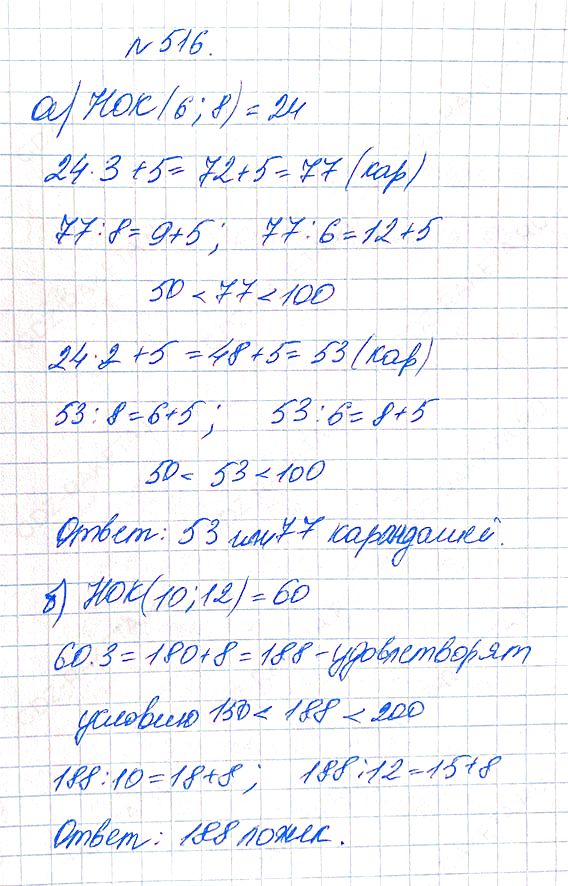 №516.
а) НОК(6;8)=24
24·3+5=72+5=77(кар)
77:8=9+5; 77:6=12+5
50<77<100
24·2+5=48+5=53(кар)
53:8=6+5; 53:6=8+5
50<53<100
Ответ: 53 или 77 карандашей.
б) НОК(10;12)=60
60·3=180+8=188-удовлетворят
условию 150<188<200
188:10=18+8; 188:12=15+8
Ответ: 188 ложек.